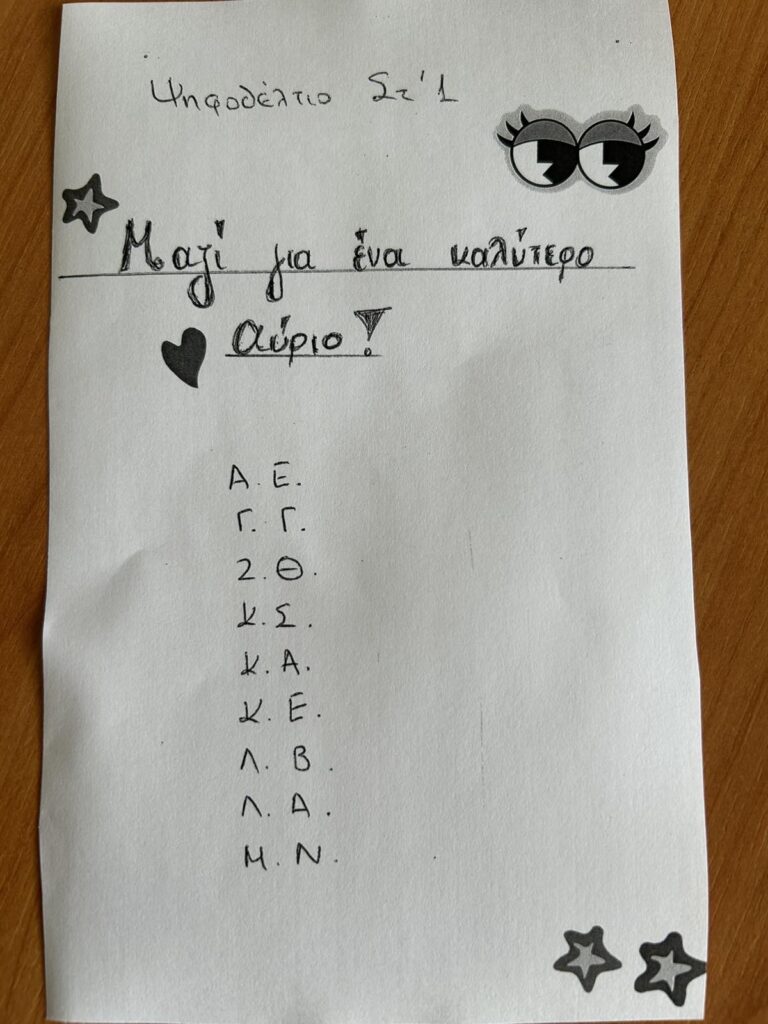 Ψηφοδέλτιο Στ'1
Μαζί για ένα καλύτερο
αύριο!
Α. Ε.
Γ. Γ.
Ζ. Θ.
Κ. Σ.
Κ. Α.
Κ. Ε.
Λ. Β.
Λ. Α.
Μ. Ν.